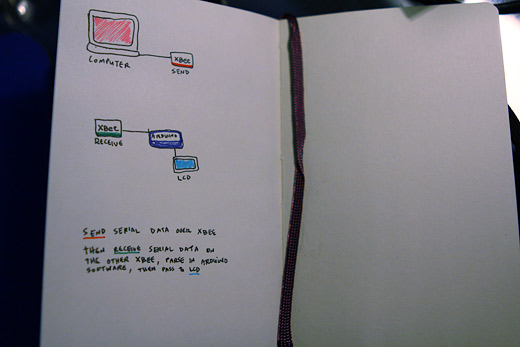 COMPUTER
XBee
SEND
XBee
RECEIVE
ARDUINO
LCD
SEND SERIAL DATA OVER XBEE
THEN RECEIVE SERIAL DATA ON
THE OTHER XBEE, PARSE IN ARDUINO
SOFTWARE, THEN PASS TO LCD